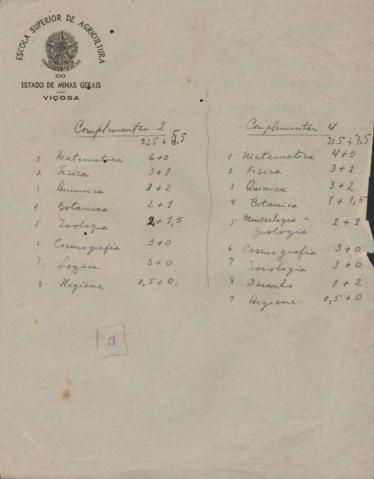 ESCOLA SUPERIOR DE AGRICULTURA
DO
ESTADO DE MINAS GERAIS
VIÇOSA
Complementar 2
22.5 + 5,5
1 Matematica 6+0
2 Fisica 3+1
3 Quimica 3+2
4 Botanica 2+1
5 Zoologia 2+1,5
6 Cosmografia 3+0
7 Logica 3+0
8 Higiene 0,5+0
Complementar 4
20.5 + 7,5
1 Matematica 4+0
2 Fisica 3+1
3 Quimica 3+2
4 Botanica 1+1,5
5 Mineralogia e 2+1
Geologia
6 Cosmografia 3+0
7 Sociologia 3+0
8 Desenho 1+2
9 Higiene 0,5+0